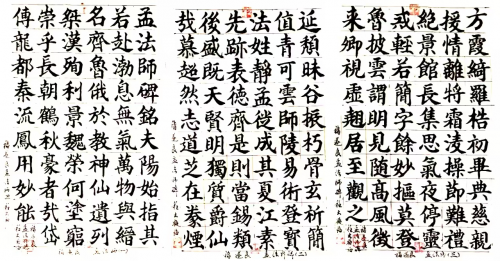 孟法師碑銘夫陽始指其
若赴渤息無氣萬物與緡
名齊魯俄於教神仙遺列
桀漢殉利景魏榮何塗窮
崇乎長朝鶴秋豪者哉岱
傳龍都秦流鳳用妙能
延頹昧谷振朽骨玄祈簡
值青可雲師陵易術登寶
法姓靜孟從成其夏江素
先跡表德齊是則當錫類
後盛既天賢明獨質爵縻
哉慕超然志道芝在煙
方霞綺羅初畢慈親
援情離將霜淩操難典
絕景館長集思氣夜停靈禮
戒輕若簡字餘妙摳莫登
魯披雲謂明見隨高風復
來卿視虛翹居至觀之